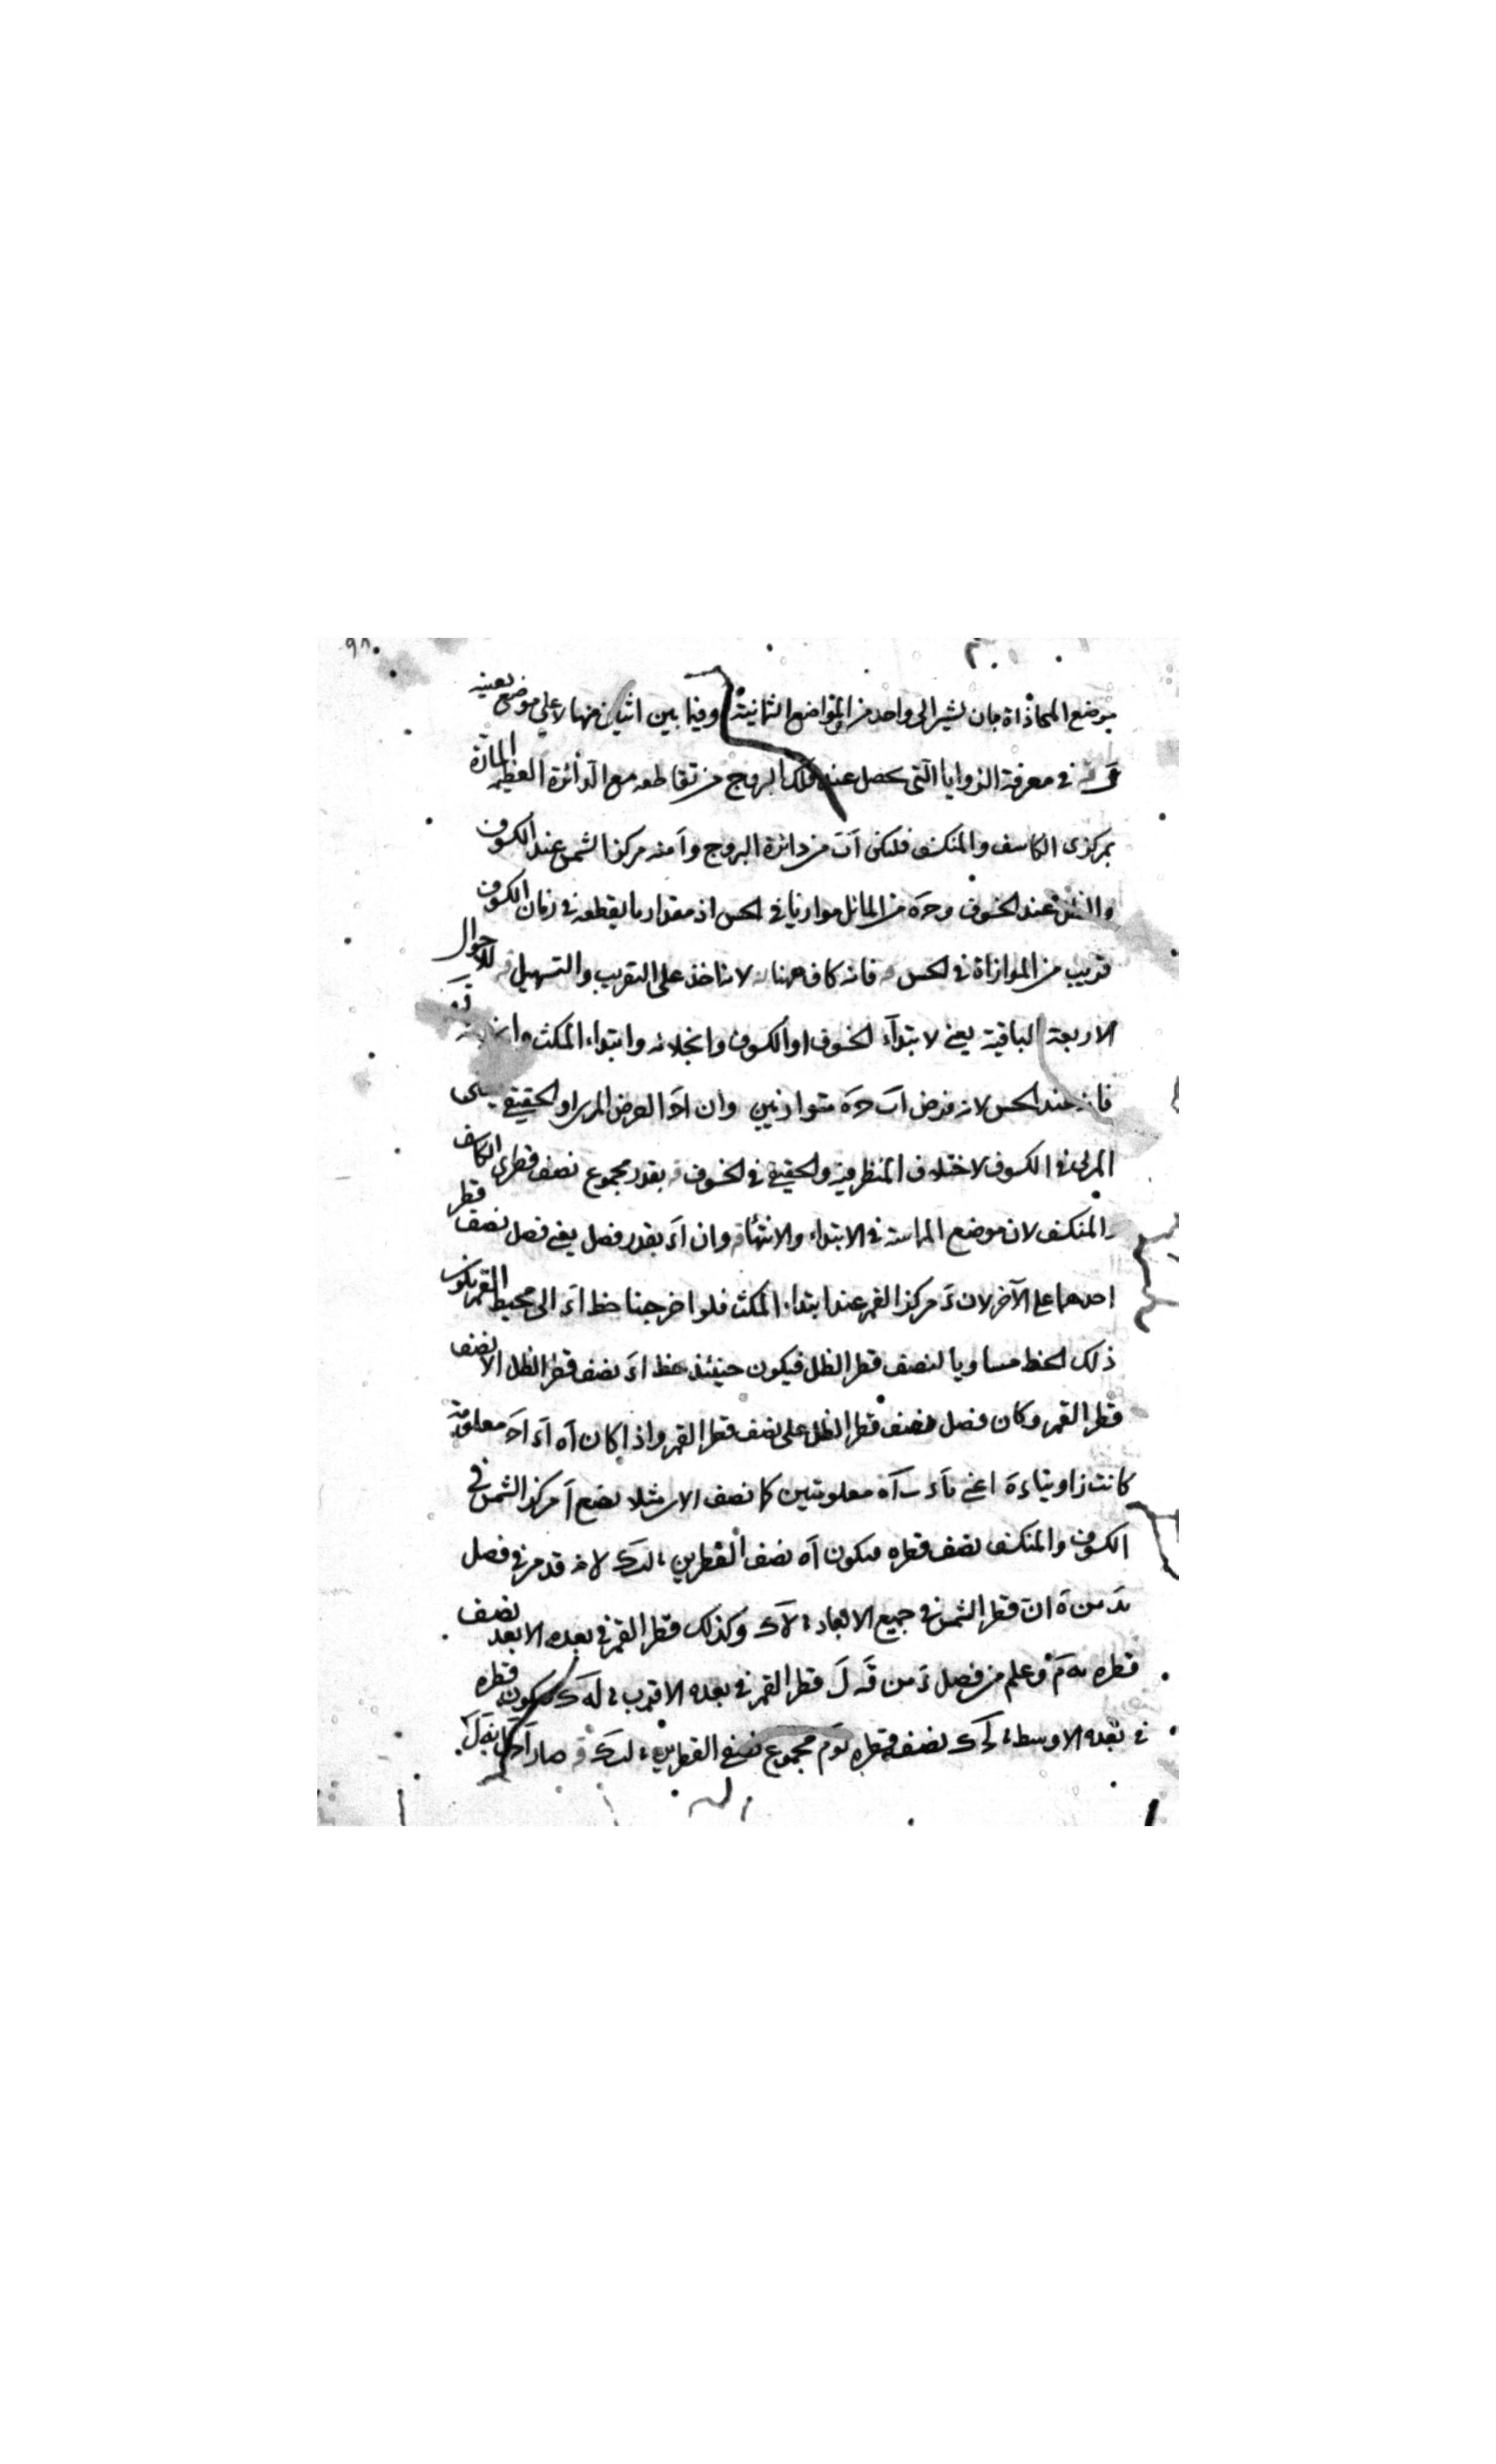 موضع المحاذاة بان نشير الى واحد من المواضع الثمانية وفيما بين اثنين منها لا على موضع بعينه
في معرفة الزوايا التى تحصل عند فلك البروج من تقاطعه مع الدائرة العظيمة المارة
بمركزى الكاسف والمنكسف فليكن اب من دائرة البروج وا منه مركز الشمس عند الكسوف
والظل عند الخسوف و ح ه من المائل موازيا فى الحس اذ مقدار ما يقطعه فى زمان الكسوف
قريب من الموازاة فى الحس فانه كاف ههنا لانا ناخذ على التقريب والتسهيل للاحوال
الاربعة الباقية يعنى لابتداء الخسوف او الكسوف وانجلائه وابتداء المكث
فانه عند الحس لانه فرض اب ح ه متوازيين وان العرض المرئى او الحقيقى يعنى
المرئى فى الكسوف لاختلاف المنظر فيه والحقيقى فى الخسوف بقدر مجموع نصف قطرى الكاسف
والمنكسف لان موضع المماسة فى الابتداء والانتهاء وان اء بقدر فصل يعنى فصل نصف قطر
احدهما على الآخر لان ء مركز القمر عند ابتداء المكث فلو اخرجنا خط اء الى محيط القمر يكون
ذلك الخط مساويا لنصف قطر الظل فيكون حينئذ خط اء نصف قطر الظل الا نصف
قطر القمر وكان فصل نصف قطر الظل على نصف قطر القمر واذا كان اه اء اح معلومة
كانت زاويتا ء ه اعنى ب ا ء ب ا ه معلومتين كا نصف الار مثلا نضع ا مركز الشمس فى
الكسوف والمنكسف نصف قطره فيكون اه نصف القطرين لانه قد مر فى فصل
يد من ه ان قطر الشمس فى جميع الابعاد وكذلك قطر القمر فى بعده الابعد نصف
قطره وعلم من فصل قطر القمر فى بعده الاقرب فيكون قطره
فى بعده الاوسط نصف قطره مجموع نصفى القطرين صار